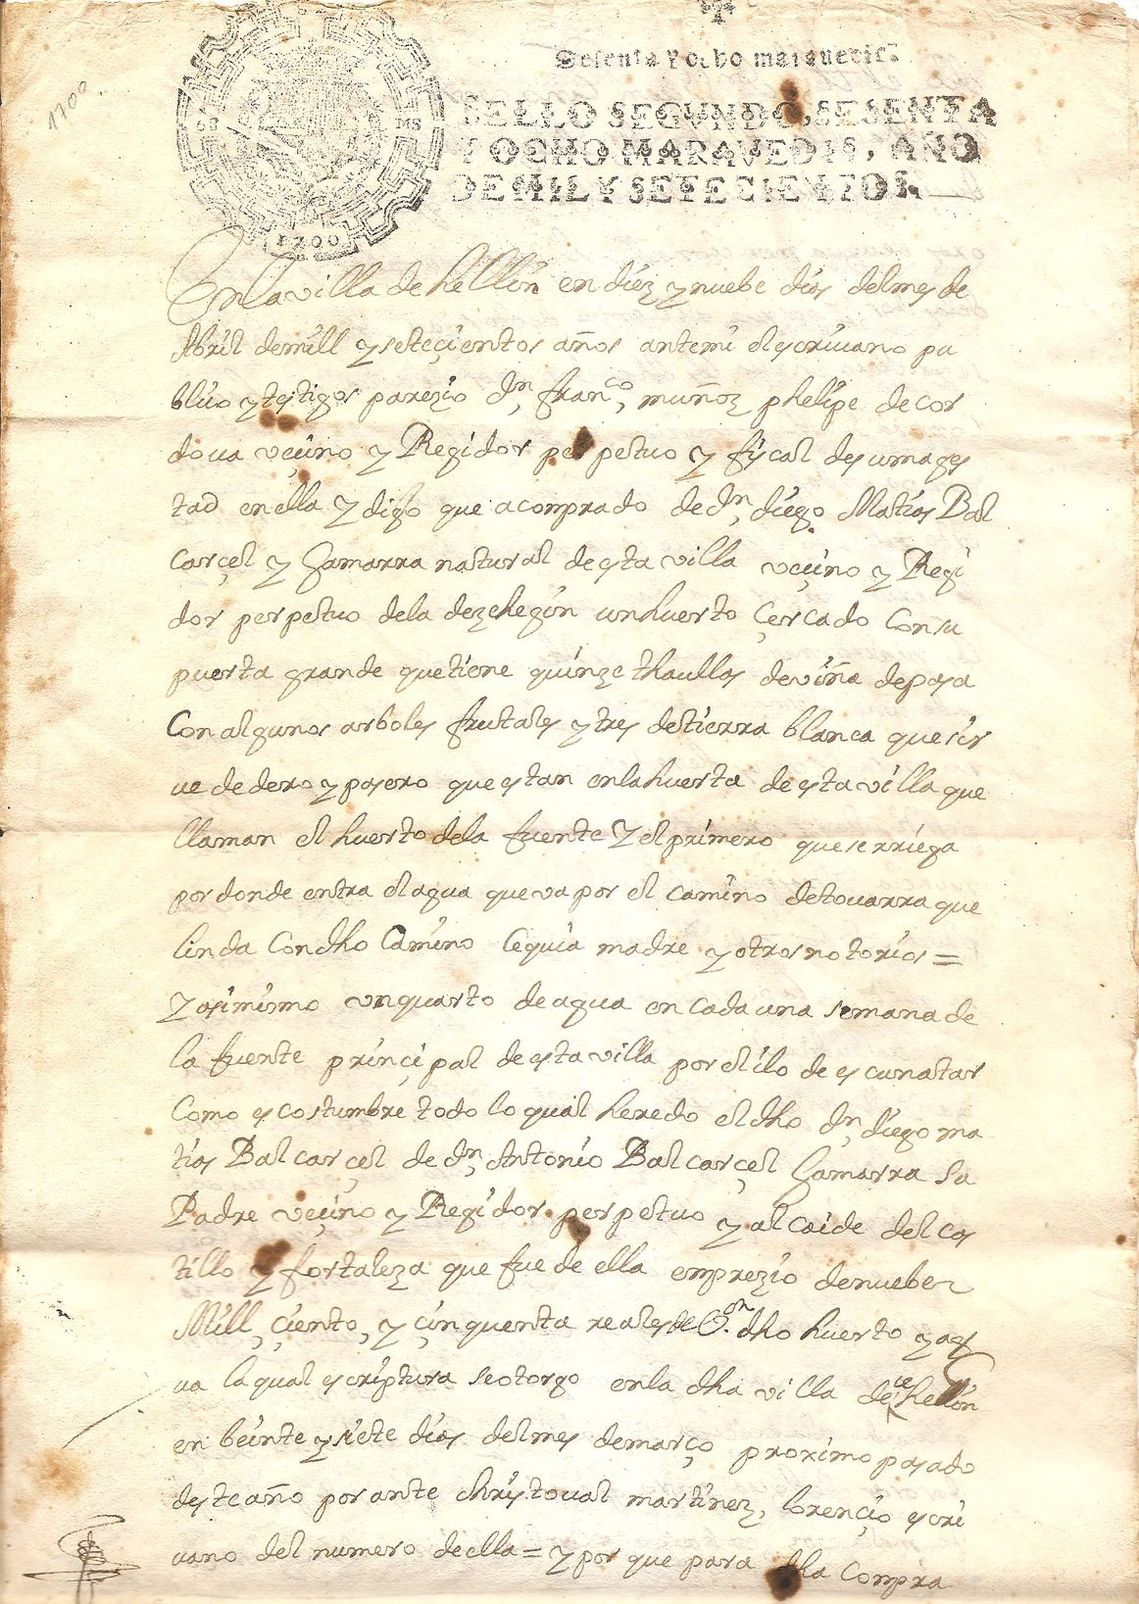 1700
Sesenta y ocho maravedis
SELLO SEGVNDO, SESENTA
Y OCHO MARAVEDIS, AÑO
DE MIL Y SETECIENTOS.
1700
En la villa de hellin en diez y nuebe dias del mes de
Abril de mill y seteçientos años ante mi el escriuano pu
blico y testigos parezio Dn, franco, muñoz phelipe de cor
doua veçino y Regidor perpetuo y fiscal de su mages
tad en ella y digo que a comprado de Dn, diego Matias Bal
carçel y Gamarra natural de esta villa veçino y Regi
dor perpetuo de la de zehegin un huerto çercado con su
puerta grande que tiene quinze thaullas de viña de pasa
Con algunos arboles frutales y tres de tierra blanca que sir
ue de dero y pasero que estan en la huerta de esta villa que
llaman el huerto de la fuente Y el primero que se rriega
por donde entra el agua que va por el camino de touarra que
linda Con dho Camino Cequia madre y otros notorios =
Y asimismo un quarto de agua en cada una semana de
la fuente prinçipal de esta villa por el ilo de escunatar
Como es costumbre todo lo qual heredo el dho Dn, diego ma
tias Balcarçel de Dn, Antonio Balcarçel Gamarra su
Padre veçino y Regidor perpetuo y alcaide del cas
tillo y fortaleza que fue de ella em prezio de nuebe
Mill, çiento, y çinquenta reales de Von. dho huerto y ag
ua la qual escriptura se otorgo en la dha villa de hellin
en beinte y siete dias del mes de março proximo pasado
deste año por ante christoual martinez, lorençio escri
uano del numero de ella = y por que para dha Compra